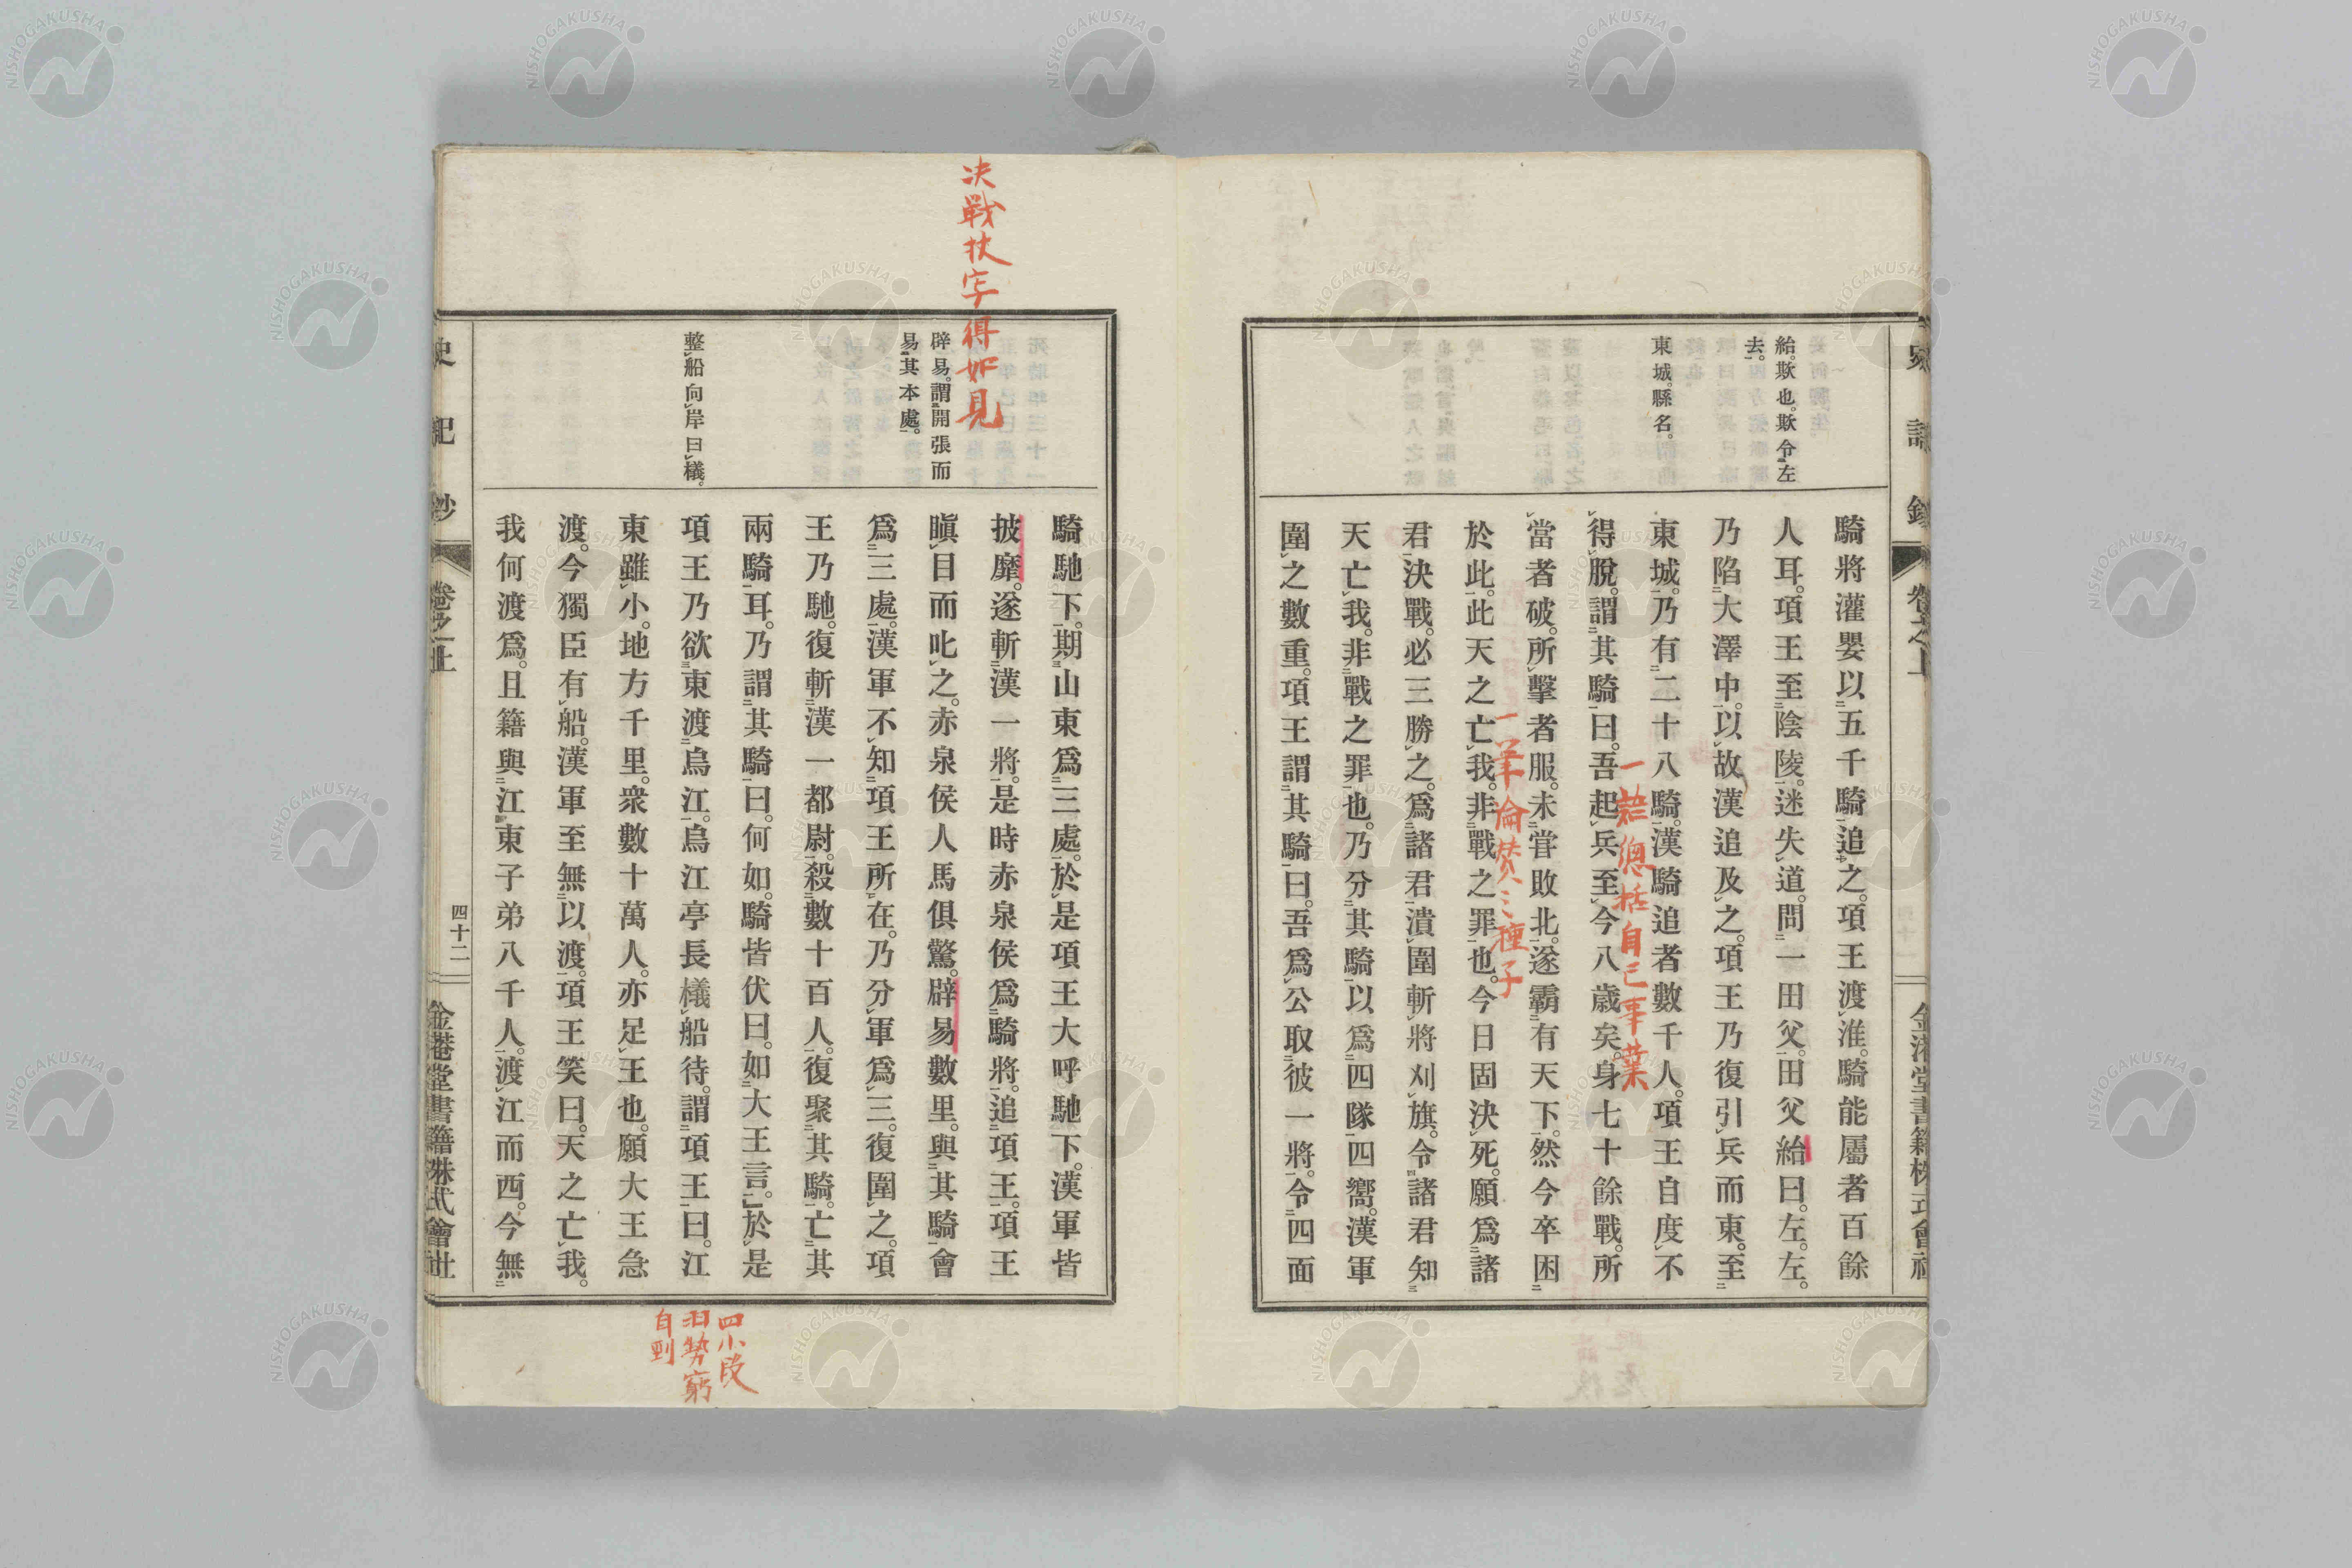 史記鈔
卷之上
金港堂書籍株式會社
紿。欺也。欺令左
去。
東城。縣名。
騎將灌嬰以五千騎追之。項王渡淮。騎能屬者百餘
人耳。項王至陰陵。迷失道。問一田父。田父紿曰。左。左。
乃陷大澤中。以故漢追及之。項王乃復引兵而東。至
東城。乃有二十八騎。漢騎追者數千人。項王自度不
得脫。謂其騎曰。吾起兵至今八歲矣。身七十餘戰。所
當者破。所擊者服。未甞敗北。遂霸有天下。然今卒困
於此。此天之亡我。非戰之罪也。今日固決死。願爲諸
君決戰。必三勝之。爲諸君潰圍斬將刈旗。令諸君知
天亡我。非戰之罪也。乃分其騎以爲四隊四嚮。漢軍
圍之數重。項王謂其騎曰。吾爲公取彼一將。令四面
一語總括自己事業
一羊倫贊之種子
決戰狀宇得如見
辟易。謂開張而
易其本處。
整船向岸曰檥。
騎馳下。期山東爲三處。於是項王大呼馳下。漢軍皆
披靡。遂斬漢一將。是時赤泉侯爲騎將。追項王。項王
瞋目而叱之。赤泉侯人馬俱驚。辟易數里。與其騎會
爲三處。漢軍不知項王所在。乃分軍爲三。復圍之。項
王乃馳。復斬漢一都尉。殺數十百人。復聚其騎。亡其
兩騎耳。乃謂其騎曰。何如。騎皆伏曰。如大王言。」於是
項王乃欲東渡烏江。烏江亭長檥船待。謂項王曰。江
東雖小。地方千里。衆數十萬人。亦足王也。願大王急
渡。今獨臣有船。漢軍至無以渡。項王笑曰。天之亡我。
我何渡爲。且籍與江東子弟八千人。渡江而西。今無
四小段
羽勢窮
自剄
史記鈔
卷之上
四十二
金港堂書籍株式會社